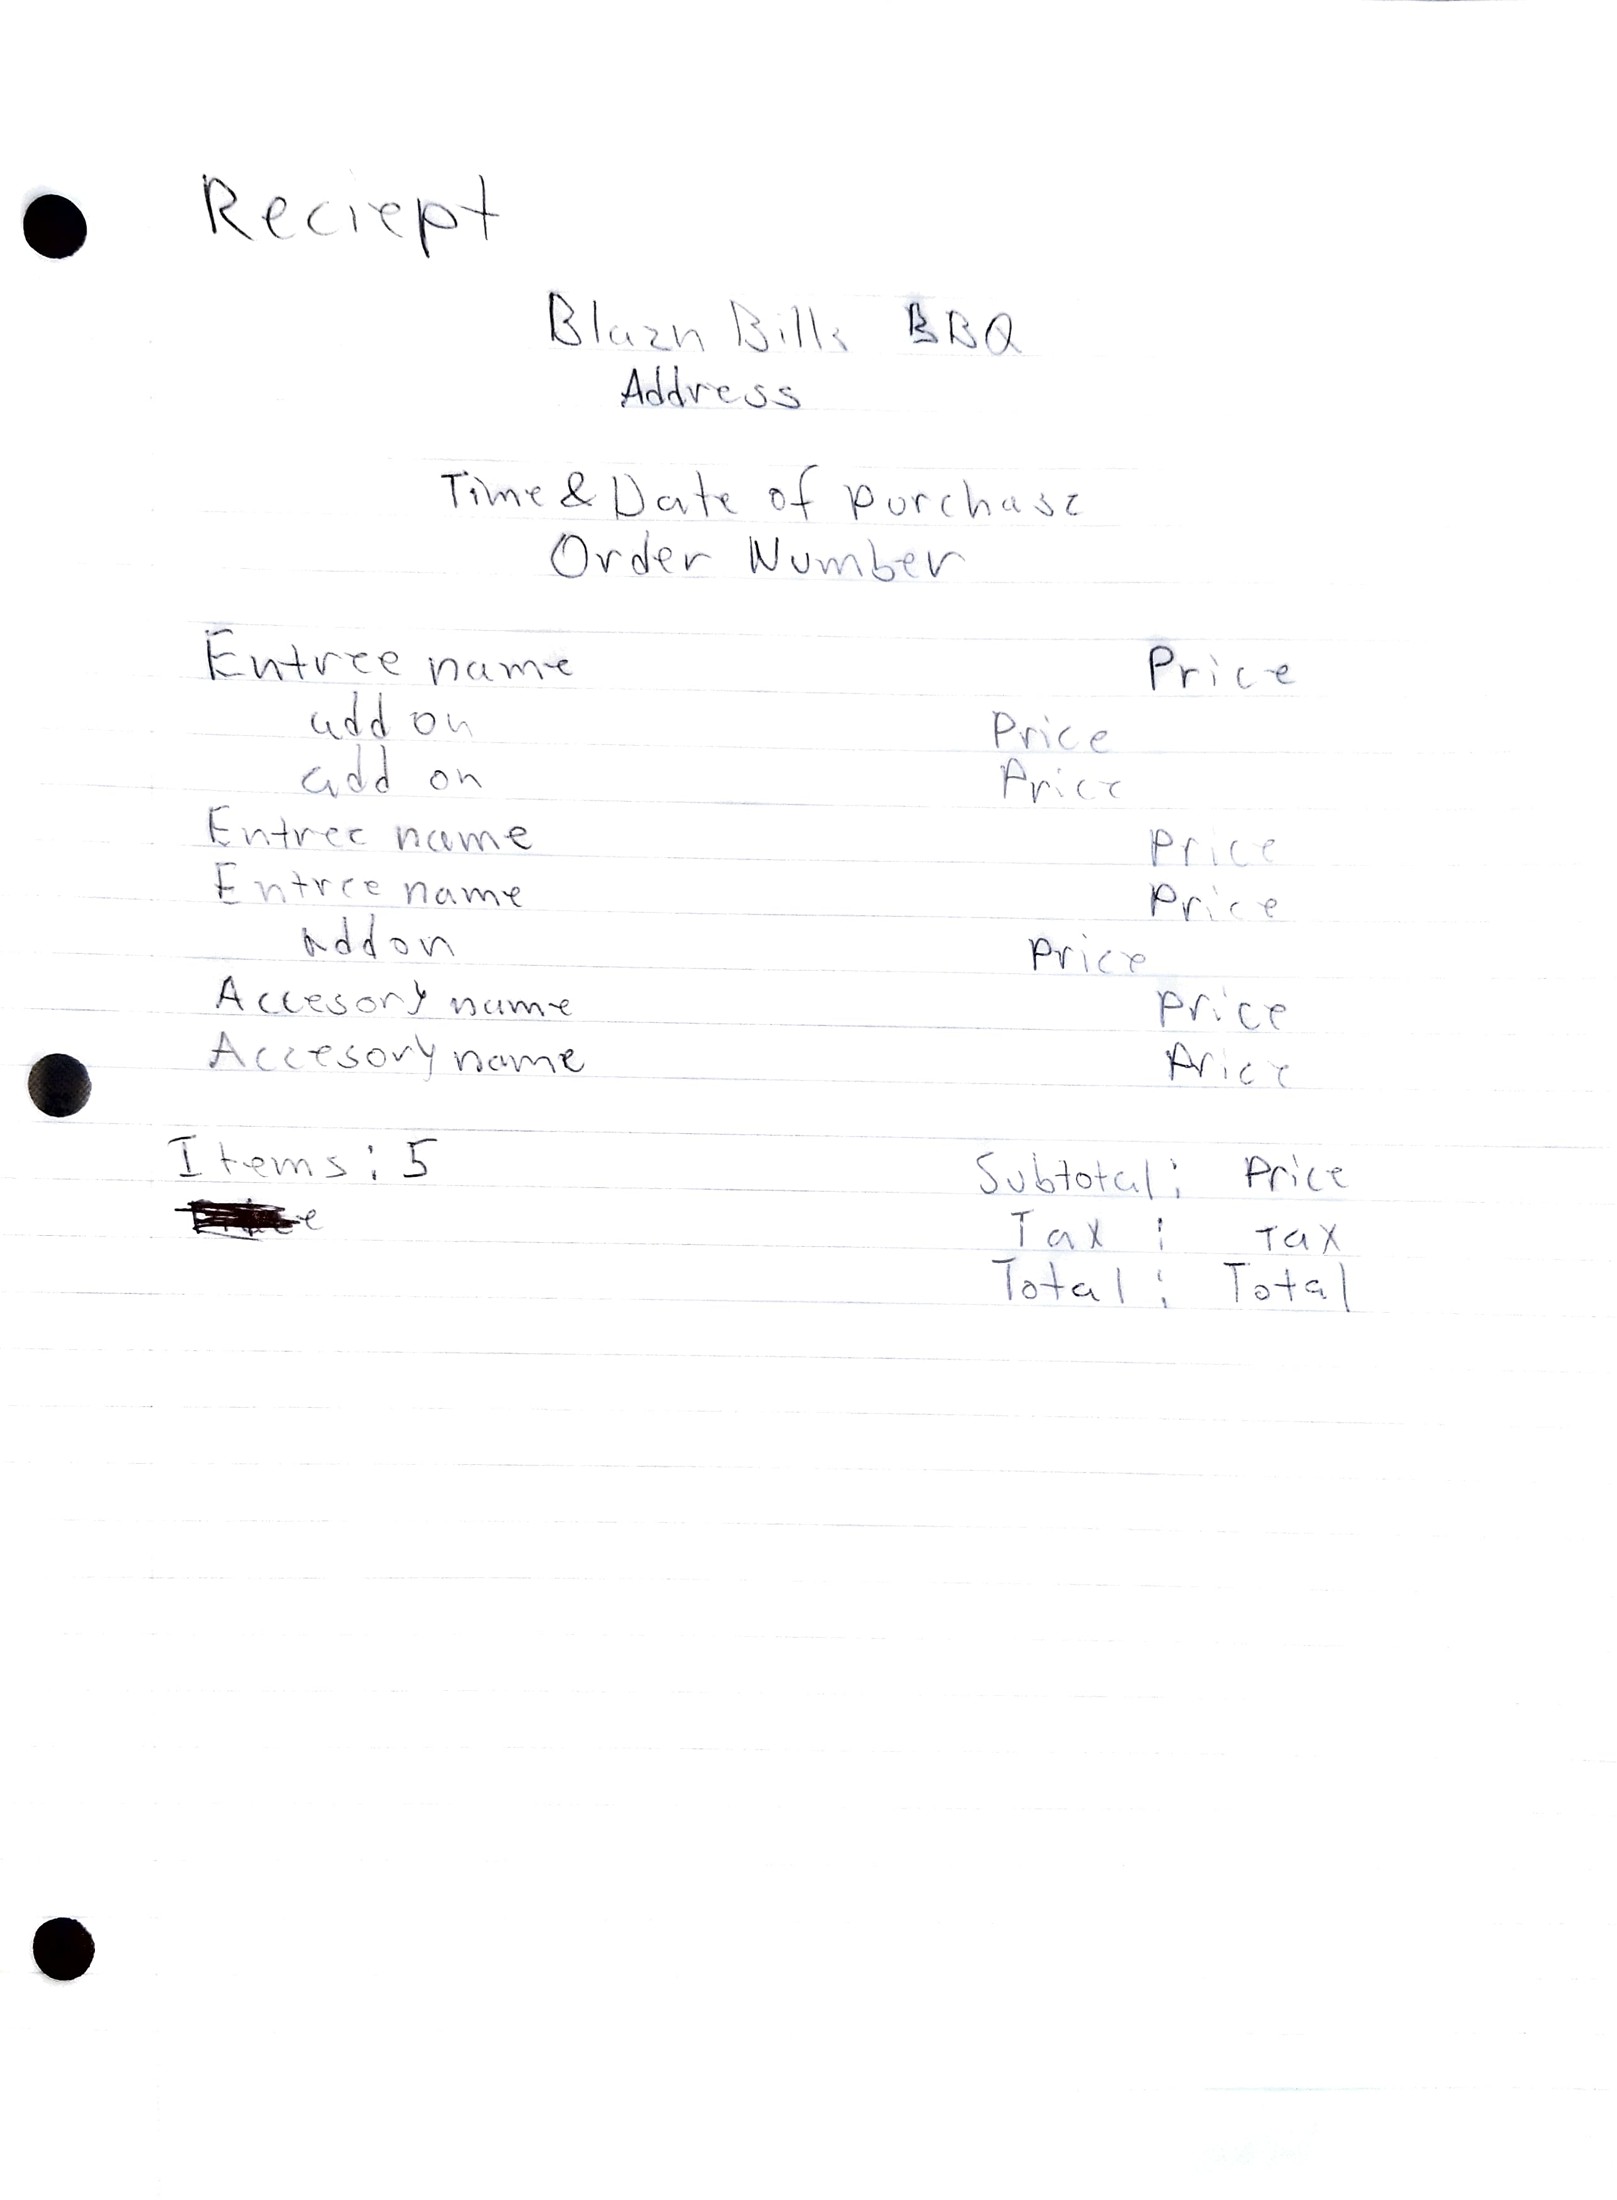 Reciept
Blazn Bills BBQ
Address
Time & Date of purchase
Order Number
Entree name Price
add on Price
add on Price
Entree name Price
Entree name Price
add on Price
Accesory name Price
Accesory name Price
Items: 5 Subtotal: Price
Tax : Tax
Total: Total